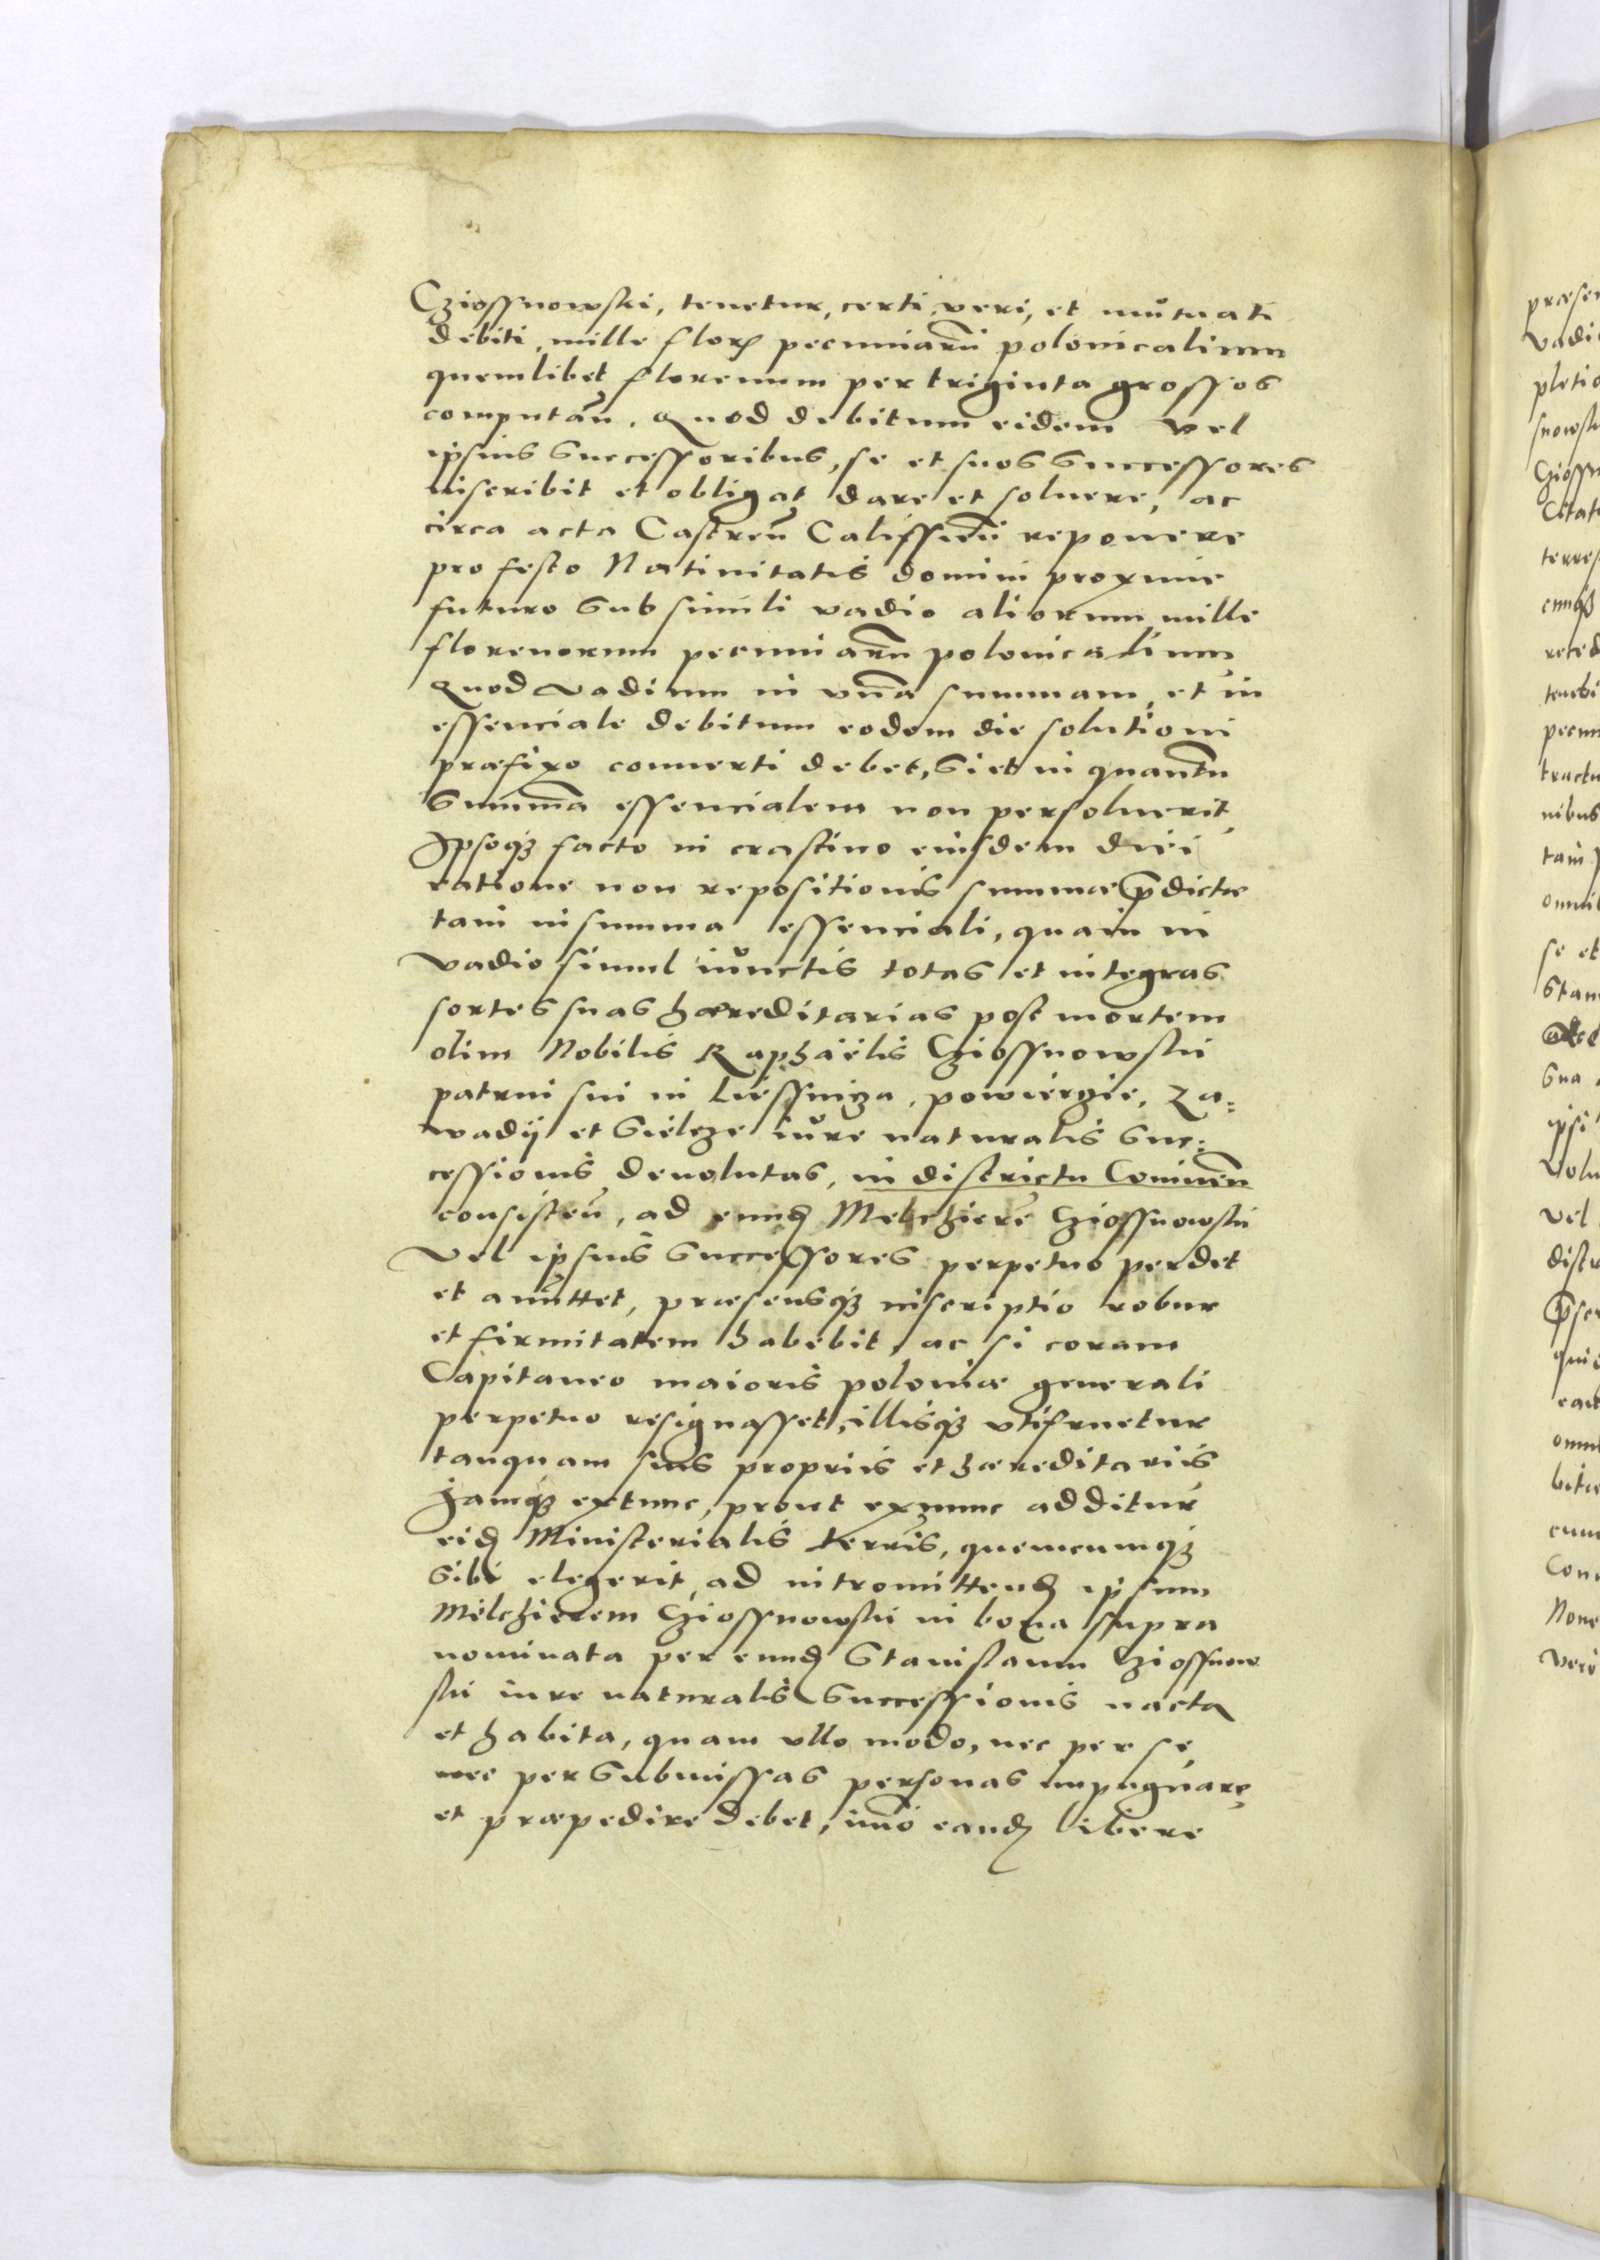 Cziossnowski, tenetur, certi, veri, et mutuati
debiti, mille flor pecuniarū polonicalium
quemlibet florenum per triginta grossos
computāū. Quod debitum eidem vel
ipsius Successoribus, se et suos Successores
inscribit et obligat dare et soluere, ac
circa acta Castreū Calissieñ reponere
pro festo Natiuitatis domini proxime
futuro sub simili vadio aliorum mille
florenorum pecuniarū polonicalium
Quod vadium in vnā summam, et in
essenciale debitum eodem die solutioni
præfixo conuerti debet, Si et in quantū
Summā essencialem non persoluerit
Ipsoqȝ facto in crastino eiusdem diei
ratione non repositionis summæ p̄dictæ
tam in summa essenciali, quam in
vadio simul iunctis totas et integras
sortes suas hæreditarias post mortem
olim Nobilis Raphaëlis Cziossnowskii
patrui sui in Liessnicza, powiercie, Za=
wadÿ et Sielcze iure naturalis Suc:
cessionis deuolutas, in districtu Coninēn
consisteū, ad eund Melchiorē Cziossnowskii
Vel ipsius Successores perpetuo perdet
et amittet, præsensqȝ inscriptio robur
et firmitatem habebit, ac si coram
Capitaneo maioris poloniæ generali
perpetuo resignasset, illisqȝ vtifruetur
tanquam suis propriis et hæreditariis
Jamqȝ extunc, prout exnunc additur
eid Ministerialis terrīs, quemcumqȝ
Sibi elegerit ad intromittend ipsum
Melchiorem Cziossnowskii in bona supra
nominata per eund Stanislaum Cziossnow
skii iure naturalis Successionis nacta
et habita, quam vllo modo, nec per se
nec per Submissas personas impugnare
et præpedire debet, imo eand libere
præse
Vadi
pleti
snowsk
Cziossn
Citat
terres
cumqȝ
pecun
tractu
nibus
tam
omni
se et
Stan
Sua
ipsi
Vel
distr
p̄ser
omni
cum
Con
None